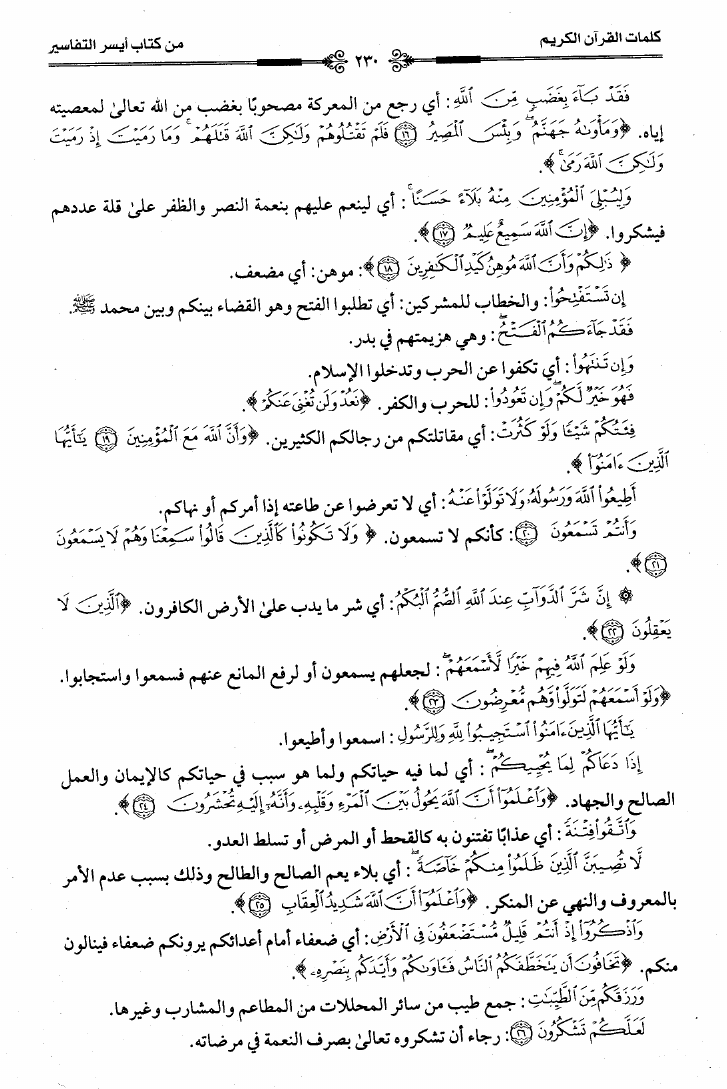 كلمات القرآن الكريم ٢٣٠ من كتاب أيسر التفاسير
فَقَدْ بَآءَ بِغَضَبٍ مِّنَ ٱللَّهِ: أي رجع من المعركة مصحوبًا بغضب من الله تعالىٰ لمعصيته
إياه. ﴿وَمَأْوَىٰهُ جَهَنَّمُ ۖ وَبِئْسَ ٱلْمَصِيرُ ١٦ فَلَمْ تَقْتُلُوهُمْ وَلَٰكِنَّ ٱللَّهَ قَتَلَهُمْ ۚ وَمَا رَمَيْتَ إِذْ رَمَيْتَ
وَلَٰكِنَّ ٱللَّهَ رَمَىٰ ۚ﴾.
وَلِيُبْلِىَ ٱلْمُؤْمِنِينَ مِنْهُ بَلَآءً حَسَنًا ۚ: أي لينعم عليهم بنعمة النصر والظفر علىٰ قلة عددهم
فيشكروا. ﴿إِنَّ ٱللَّهَ سَمِيعٌ عَلِيمٌ ١٧﴾.
﴿ذَٰلِكُمْ وَأَنَّ ٱللَّهَ مُوهِنُ كَيْدِ ٱلْكَٰفِرِينَ ١٨﴾: موهن: أي مضعف.
إِن تَسْتَفْتِحُوا۟: والخطاب للمشركين: أي تطلبوا الفتح وهو القضاء بينكم وبين محمد ﷺ.
فَقَدْ جَآءَكُمُ ٱلْفَتْحُ ۖ: وهي هزيمتهم في بدر.
وَإِن تَنتَهُوا۟: أي تكفوا عن الحرب وتدخلوا الإسلام.
فَهُوَ خَيْرٌ لَّكُمْ ۖ وَإِن تَعُودُوا۟: للحرب والكفر. ﴿نَعُدْ وَلَن تُغْنِىَ عَنكُمْ﴾.
فِئَتُكُمْ شَيْـًٔا وَلَوْ كَثُرَتْ: أي مقاتلتكم من رجالكم الكثيرين. ﴿وَأَنَّ ٱللَّهَ مَعَ ٱلْمُؤْمِنِينَ ١٩ يَٰٓأَيُّهَا
ٱلَّذِينَ ءَامَنُوٓا۟﴾.
أَطِيعُوا۟ ٱللَّهَ وَرَسُولَهُۥ وَلَا تَوَلَّوْا۟ عَنْهُ: أي لا تعرضوا عن طاعته إذا أمركم أو نهاكم.
وَأَنتُمْ تَسْمَعُونَ ٢٠: كأنكم لا تسمعون. ﴿وَلَا تَكُونُوا۟ كَٱلَّذِينَ قَالُوا۟ سَمِعْنَا وَهُمْ لَا يَسْمَعُونَ
٢١﴾.
۞ إِنَّ شَرَّ ٱلدَّوَآبِّ عِندَ ٱللَّهِ ٱلصُّمُّ ٱلْبُكْمُ: أي شر ما يدب علىٰ الأرض الكافرون. ﴿ٱلَّذِينَ لَا
يَعْقِلُونَ ٢٢﴾.
وَلَوْ عَلِمَ ٱللَّهُ فِيهِمْ خَيْرًا لَّأَسْمَعَهُمْ ۖ: لجعلهم يسمعون أو لرفع المانع عنهم فسمعوا واستجابوا.
﴿وَلَوْ أَسْمَعَهُمْ لَتَوَلَّوا۟ وَّهُم مُّعْرِضُونَ ٢٣﴾.
يَٰٓأَيُّهَا ٱلَّذِينَ ءَامَنُوا۟ ٱسْتَجِيبُوا۟ لِلَّهِ وَلِلرَّسُولِ: اسمعوا وأطيعوا.
إِذَا دَعَاكُمْ لِمَا يُحْيِيكُمْ ۖ: أي لما فيه حياتكم ولما هو سبب في حياتكم كالإيمان والعمل
الصالح والجهاد. ﴿وَٱعْلَمُوٓا۟ أَنَّ ٱللَّهَ يَحُولُ بَيْنَ ٱلْمَرْءِ وَقَلْبِهِۦ وَأَنَّهُۥٓ إِلَيْهِ تُحْشَرُونَ ٢٤﴾.
وَٱتَّقُوا۟ فِتْنَةً: أي عذابًا تفتنون به كالقحط أو المرض أو تسلط العدو.
لَّا تُصِيبَنَّ ٱلَّذِينَ ظَلَمُوا۟ مِنكُمْ خَآصَّةً ۖ: أي بلاء يعم الصالح والطالح وذلك بسبب عدم الأمر
بالمعروف والنهي عن المنكر. ﴿وَٱعْلَمُوٓا۟ أَنَّ ٱللَّهَ شَدِيدُ ٱلْعِقَابِ ٢٥﴾.
وَٱذْكُرُوٓا۟ إِذْ أَنتُمْ قَلِيلٌ مُّسْتَضْعَفُونَ فِى ٱلْأَرْضِ: أي ضعفاء أمام أعدائكم يرونكم ضعفاء فينالون
منكم. ﴿تَخَافُونَ أَن يَتَخَطَّفَكُمُ ٱلنَّاسُ فَـَٔاوَىٰكُمْ وَأَيَّدَكُم بِنَصْرِهِۦ﴾.
وَرَزَقَكُم مِّنَ ٱلطَّيِّبَٰتِ: جمع طيب من سائر المحللات من المطاعم والمشارب وغيرها.
لَعَلَّكُمْ تَشْكُرُونَ ٢٦: رجاء أن تشكروه تعالىٰ بصرف النعمة في مرضاته.